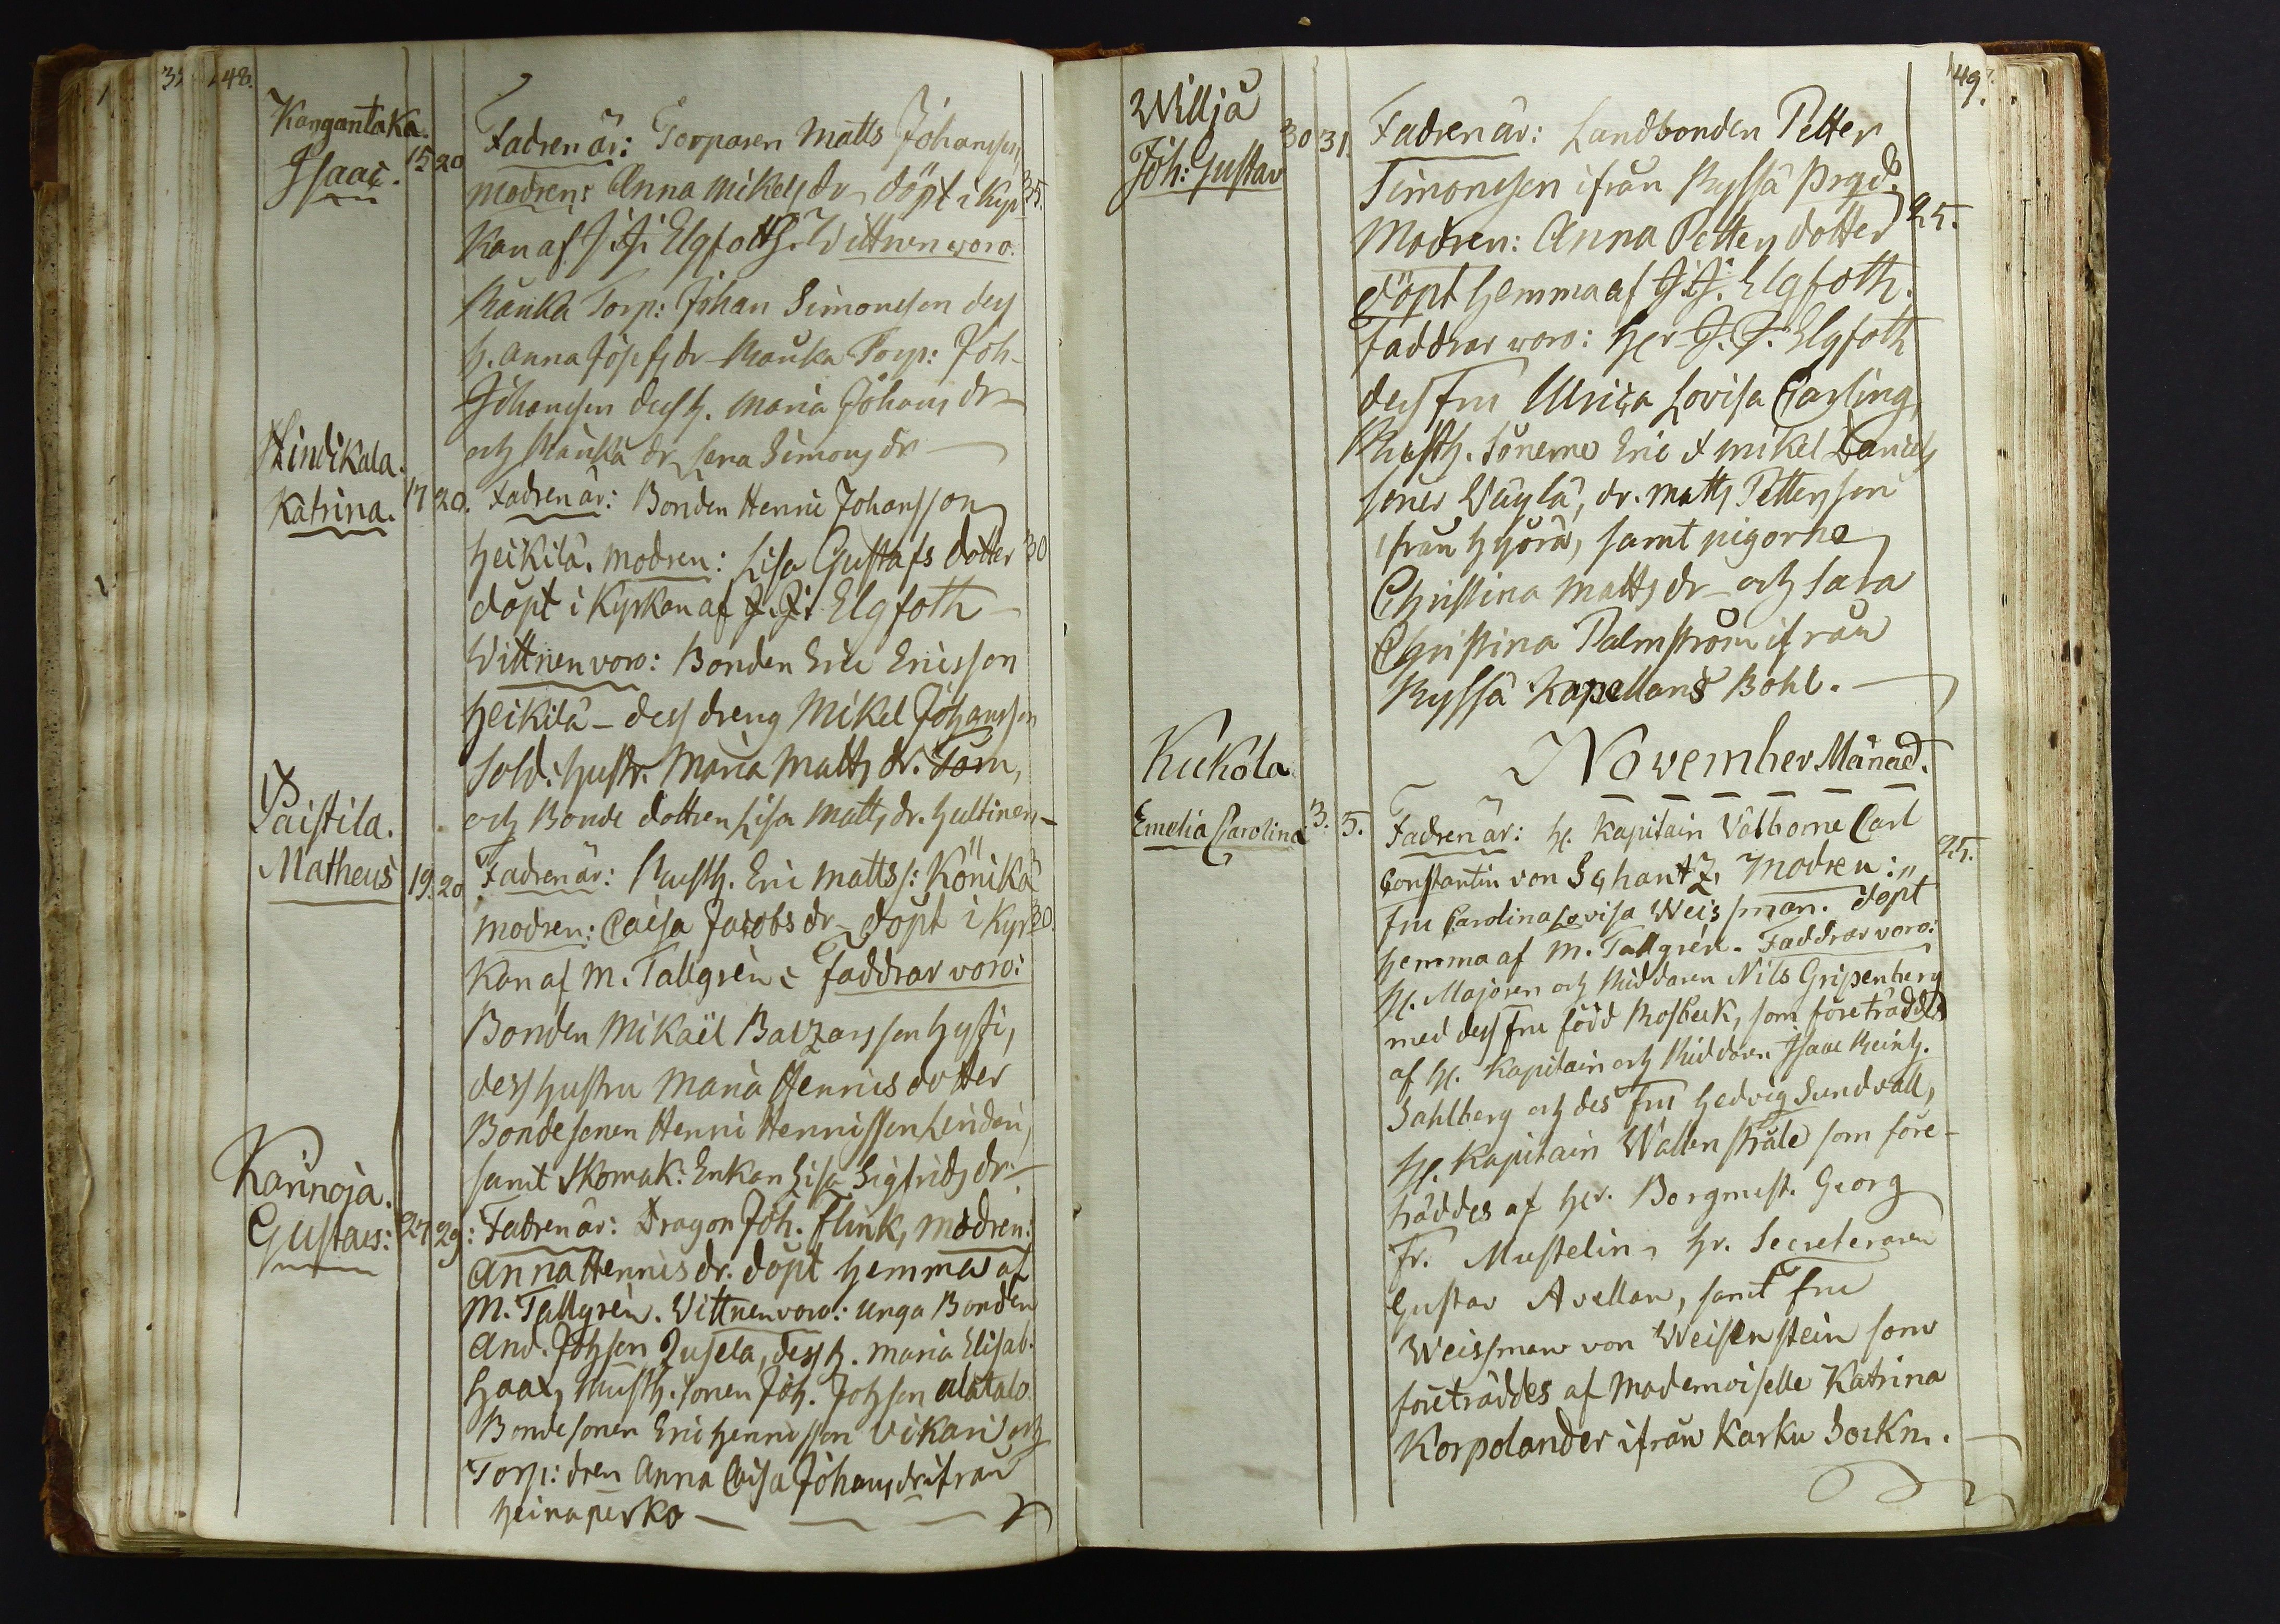 148.
Kangantaka.
Isaac.
15 20
Fadren är: Torparen Matts Johansson,
modren: Anna Mikelsdr, döpt i Kyr- 35.
kan af J: J: Elgfoth. Wittnen woro.
Rauka Torp: Johan Simonsson dess
h. Anna Josefsdr - Rauka Torp: Joh-
Johansson dess h. Maria Johansdr -
och Rauka dr Lena Simonsdr -
Hindikala.
Katrina.
17 20.
Fadren är: Bonden Henric Johansson
Heikilä. modren: Lisa Gustafs dotter 30
döpt i Kyrkan af J. J: Elgfoth -
Wittnen woro: Bonden Eric Ericsson
Heikilä - dess dreng Mikel Johansson
Sold: hustr. Maria Matts dr. Tam,
och Bonde dottren Lisa Matts dr. Hultinen -
Paistila.
Matheus
19. 20
Fadren är: Rusth. Eric Matts: Könikä
modren: Caisa Jacobs dr - döpt i Kyr- 30.
kan af M. Tallgrèn - faddrar voro:
Bonden Mikaël Balzarsson Hysti,
dess hustru Maria Hennis dotter
Bondesonen Henric Hennisson Lendari,
samt Skomak: Enkan Lisa Sigfridsdr. -
Karinoja.
Gustavs:
27 29:
Fadren är: Dragon Joh. Flink, modren:
Anna Hennis dr. döpt hemma af
M. Tallgrèn. Vittnen voro: unga Bonden
And. Johsson Jusela, dess h. Maria Elisab.
Haax, Rusth. sonen Joh. Johsson alatalo
Bonde sonen Eric Hennisson Vikari och
Torp: dren Anna Caisa Johansdr ifrån
Heinaperko -
149.
Willjä
Joh: Gustav
30 31.
Fadren är: Landbonden Petter
Simonsson ifrån Ryssä Prgd. 25.
Modren: Anna Petters dotter
döpt hemma af J. J. Elgfoth.
Faddrar woro: Her J. J. Elgfoth
dess Fru Ulrica Lovisa Carling,
Rusth. sönerne Eric & Mikel Daniels
söner Wäylä, dr. Matts Pettersson
ifrån Hyörä, samt pigorne
Christina Mattsdr - och Sara
Christina Palmström ifrån
Ryssä Kapellans Bohl. -
November Månad.
Kukola
Emelia Carolina
3. 5.
Fadren är: H. Kapitain Välborne Carl
Constantin von Schantz, Modren: 25.
Fru Carolina Lovisa Weissman. döpt
hemma af M. Tallgrèn. Faddrar voro:
H. Majoren och Riddaren Nils Gripenberg
med dess Fru född Rosbeck, som företräddes
af H. Kapitain och Riddaren Isaac Reinh.
Sahlberg och des Fru Hedvig Sundvall,
H. Kapitain Wallenstråle som före-
träddes af Her. Borgmest. Georg
Fr. Mustelin, Hr. Secreteraren
Gustav Avellan, samt Fru
Weissman von Weissenstein som
företräddes af Mademoiselle Katrina
Korpolander ifrån Karku Sockn.